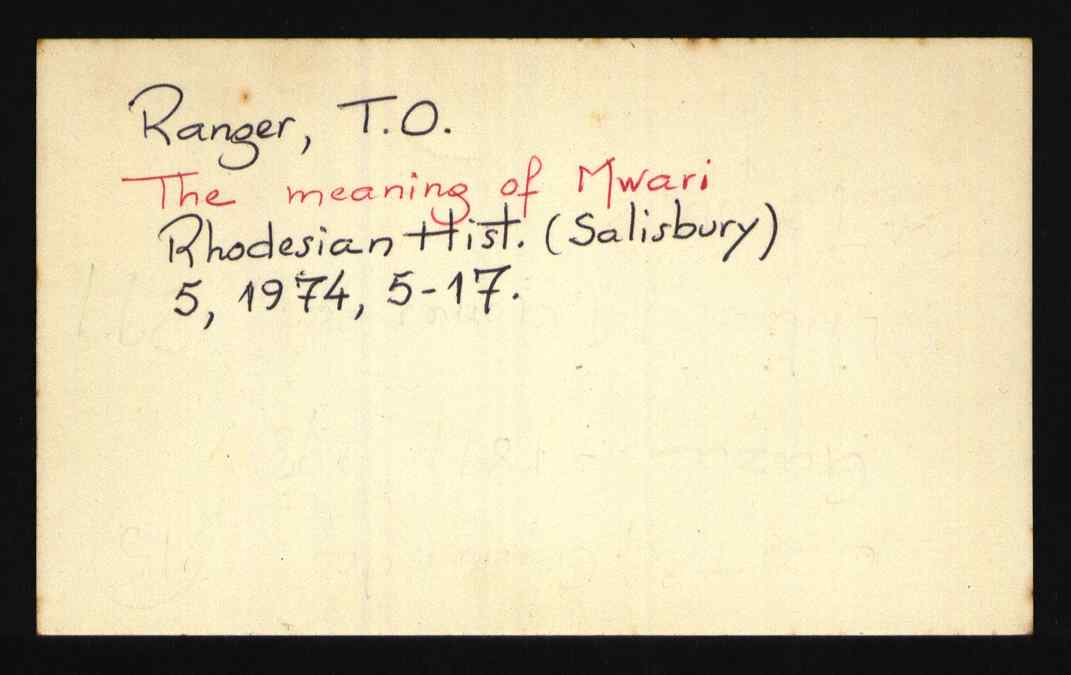 Ranger, T.O.
The meaning of Mwari
Rhodesian Hist. (Salisbury)
5, 1974, 5-17.